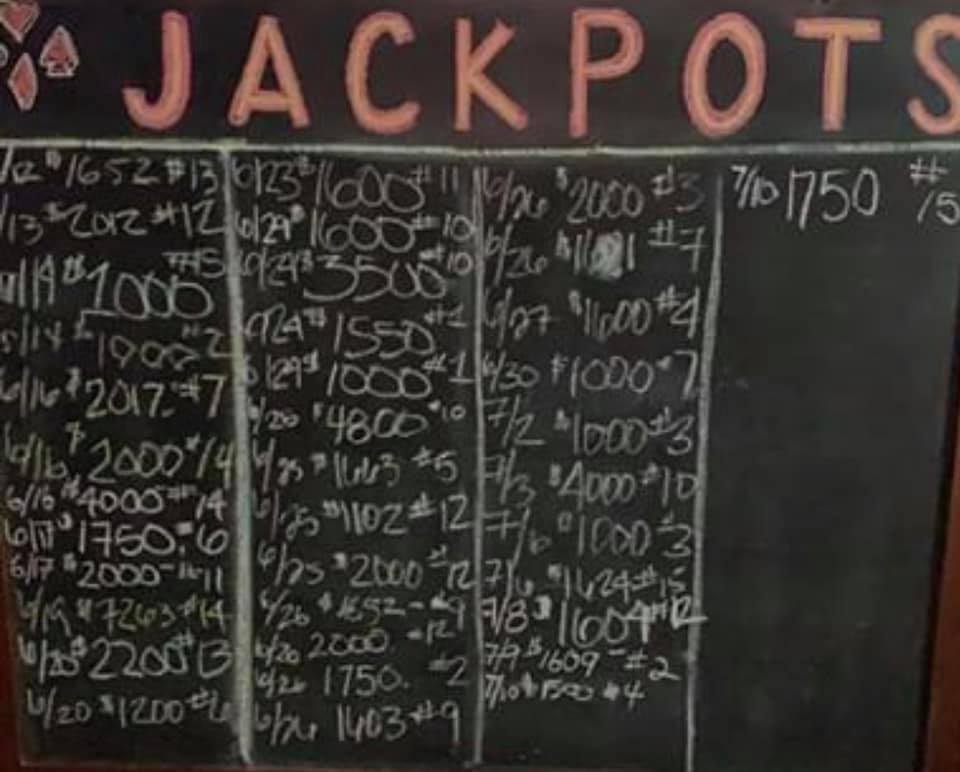 JACKPOTS
$1652 #13
/13 $2012 #12
#15
$1000
#2
6/16 $2017 #7
$2000 #14
6/16 $4000 #14
6/17 $1750 #6
6/17 $2000 - #11
6/19 $7263 #14
6/20 $2200 #13
6/20 $1200
6/23 $1600 #11
6/24 $1600 #10
6/24 $3500 #10
$1550 #1
$1000 #1
$4800 #10
6/25 $1663 #5
6/25 $1102 #12
6/25 $2000 #12
6/26 $1652 - #9
6/26 2000 - #12
6/26 1750. #2
6/26 1403 #9
6/26 $2000 #3
6/26 #7
6/27 $1600 #4
6/30 $1000 #7
7/2 $1000 #3
7/3 $4000 #10
7/6 $1000 #3
7/6 $1624 #15
7/8 $1604 #12
7/9 $1609 - #2
7/10 $1500 #4
7/10 1750 #15